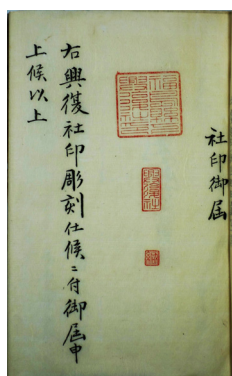 社印御届
興復社
右興復社印彫刻仕候ニ付御届申
上候以上